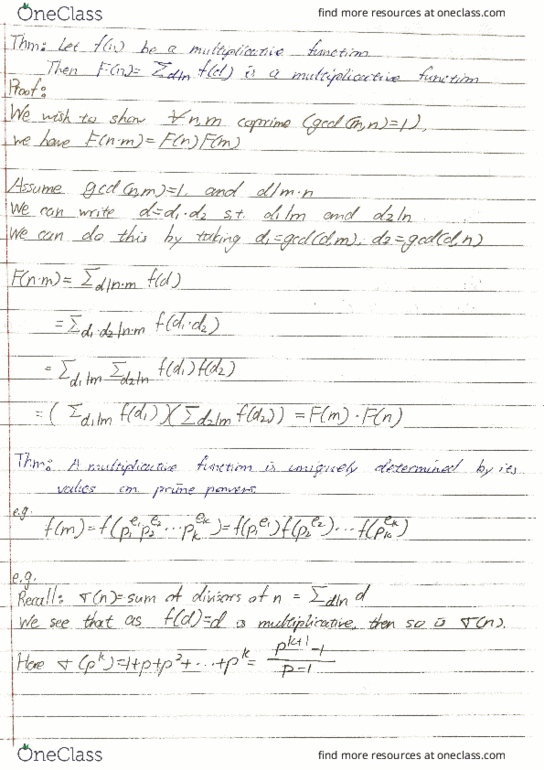 OneClass
find more resources at oneclass.com
Thm: Let f(n) be a multiplicative function.
Then F(n)= Σd|n f(d) is a multiplicative function
Proof:
We wish to show ∀n,m coprime (gcd(m,n)=1),
we have F(n·m)=F(n)F(m)
Assume gcd(n,m)=1, and d|m·n
We can write d=d₁·d₂ s.t. d₁|m and d₂|n.
We can do this by taking d₁=gcd(d,m), d₂=gcd(d,n)
F(n·m)= Σd|n·m f(d)
= Σd₁·d₂|n·m f(d₁·d₂)
= Σd₁|m Σd₂|n f(d₁)f(d₂)
= ( Σd₁|m f(d₁) )( Σd₂|m f(d₂)) = F(m)·F(n)
Thm: A multiplicative function is uniquely determined by its
values on prime powers.
e.g.
f(m)=f(p₁^e₁ p₂^e₂ ... pₖ^eₖ)=f(p₁^e₁)f(p₂^e₂)... f(pₖ^eₖ)
e.g.
Recall: σ(n)=sum of divisors of n = Σd|n d
We see that as f(d)=d is multiplicative, then so is σ(n).
Here σ(p^k)=1+p+p²+...+p^k= (p^(k+1) -1)/(p-1)
OneClass
find more resources at oneclass.com